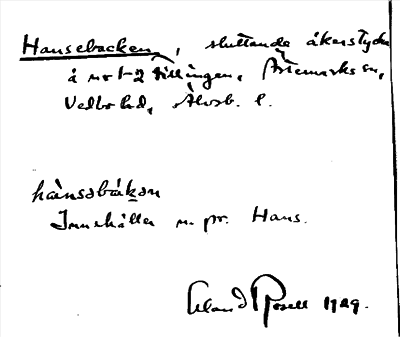 Hansebacken, sluttande åkerstycke
å nr 1-2 Tillingen, Ärtemarks sn,
Vedbo hd, Älvsb. l.
hànsəbàkən
Innehåller m. pr. Hans.
Erland Rosell 1929.